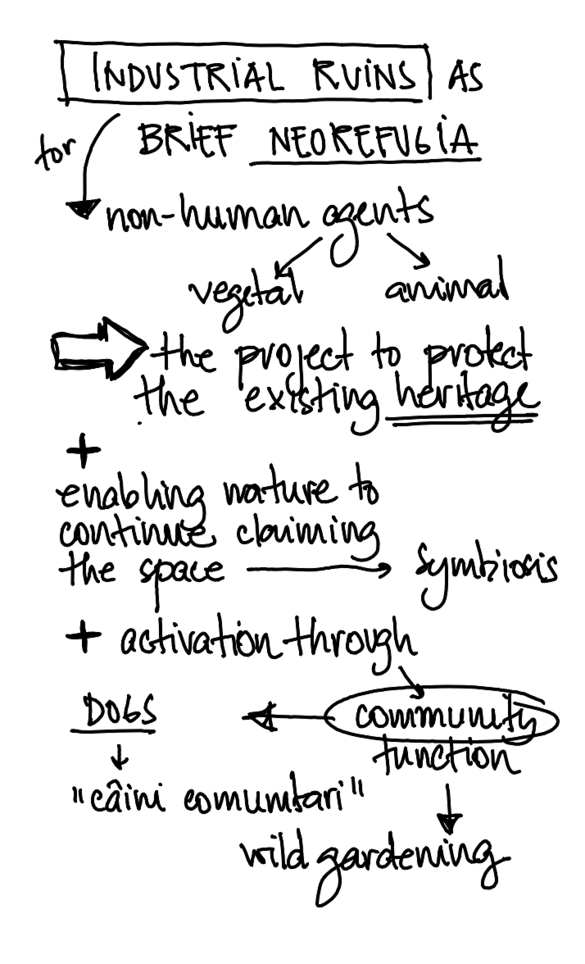 INDUSTRIAL RUINS AS
for
BRIEF NEOREFUGIA
non-human agents
vegetal animal
the project to protect
the existing heritage
+
enabling nature to
continue claiming
the space symbiosis
+ activation through
DOGS community
function
"câini comunitari"
wild gardening